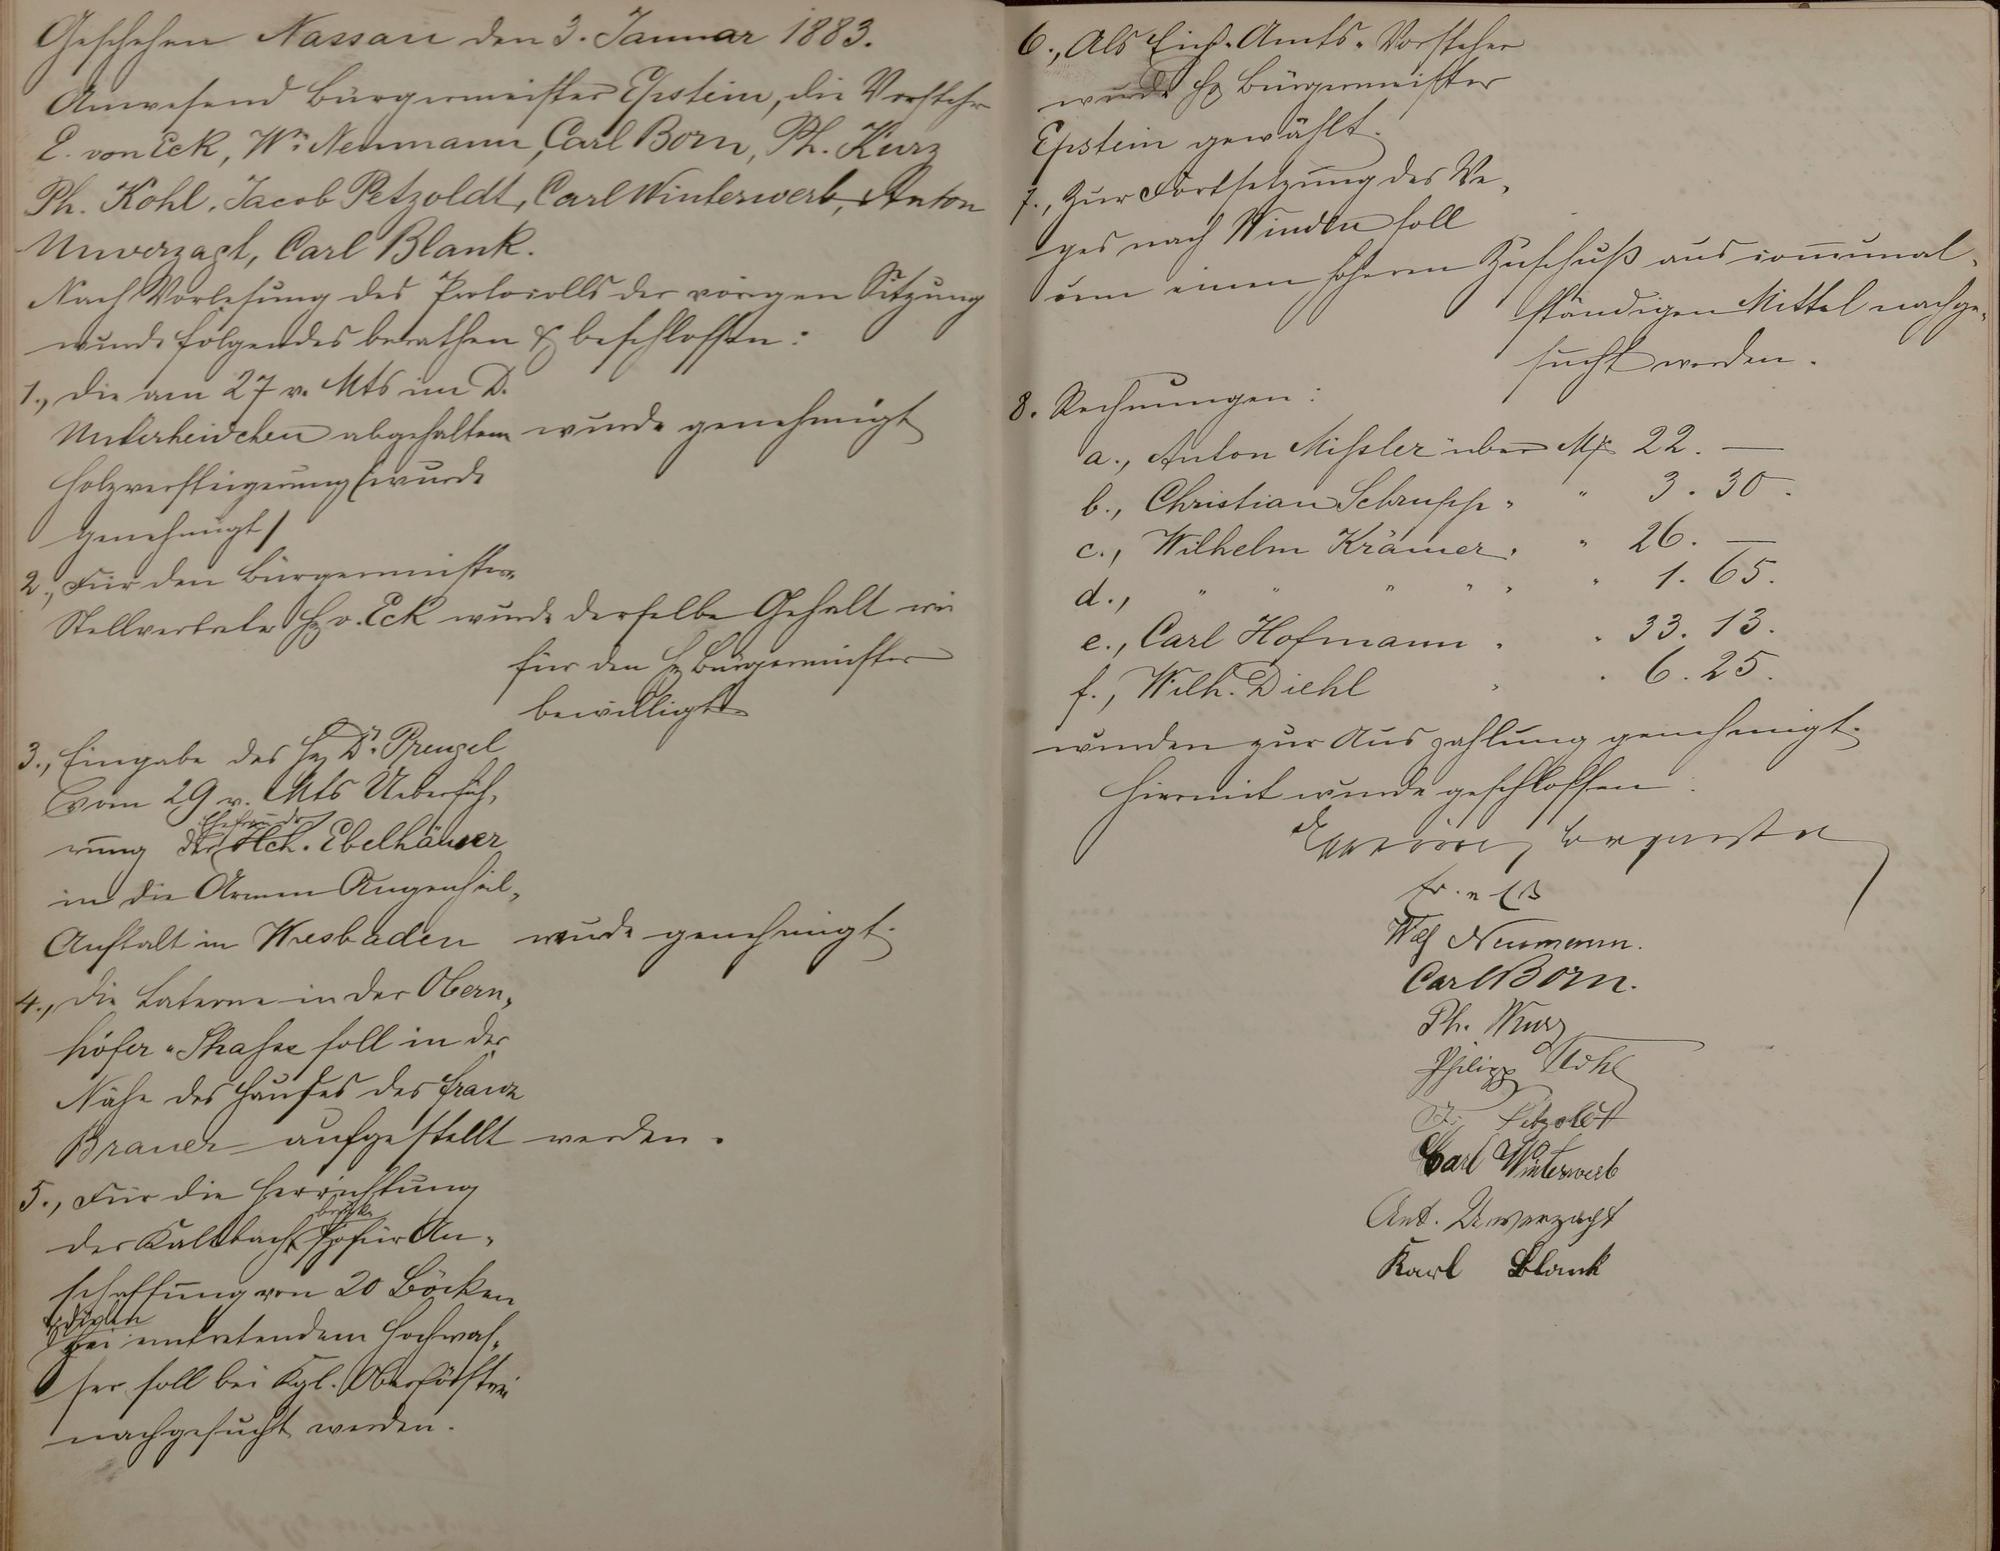 Geschehen Nassau den 3. Januar 1883.
Anwesend Bürgermeister Epstein, die Vorsteher
E. von Eck, Wm. Neumann, Carl Born, Ph. Kurz
Ph. Kohl, Jacob Petzoldt, Carl Winterwerb, Anton
Unverzagt, Carl Blank.
Nach Vorlesung des Protocolls der vorigen Sitzung
wurde folgendes berathen & beschlossen:
1., Die am 27 v. Mts im D.
Unterheidchen abgehaltene wurde genehmigt
Holzversteigerung (wurde
genehmigt)
2., Für den Bürgermeister-
Stellvertreter H. v. Eck wurde derselbe Gehalt wie
für den H. Bürgermeister
bewilligt.
3., Eingabe des H. Dr. Prenzel
vom 29 v. Mts Ueberfüh-
Ehefrau des
rung der Hch. Ebelhäuser
in die Armen Augenheil-
Anstalt in Wiesbaden wurde genehmigt.
4., Die Laterne in der Obern-
höfer-Strasse soll in der
Nähe des Hauses des Franz
Brauer aufgestellt werden.
5., Für die Herrichtung
brücke
der Kaltbach für An-
schaffung von 20 Böcken
bei eintretendem Hochwas-
ser soll bei Kgl. Oberförsterei
nachgesucht werden.
6., Als Eich-Amts-Vorsteher
wurde H. Bürgermeister
Epstein gewählt.
7., Zur Fortsetzung des We-
ges nach Winden soll
um einen höheren Zuschuß aus communal-
ständigen Mittel nachge-
sucht werden.
8. Rechnungen:
a., Anton Missler über Mk 22. —
b., Christian Schrupp " " 3. 30.
c., Wilhelm Krämer " " 26. —
d., " " " " " " 1. 65.
e., Carl Hofmann " " 33. 13.
f., Wilh. Diehl " " 6. 25.
wurden zur Auszahlung genehmigt.
Hiermit wurde geschlossen:
Epstein, Bürgermeister
v. Eck
Wilh Neumann.
Carl Born.
Ph. Kurz
Philipp Kohl
J. Petzoldt
Carl Winterwerb
Ant. Unverzagt
Karl Blank